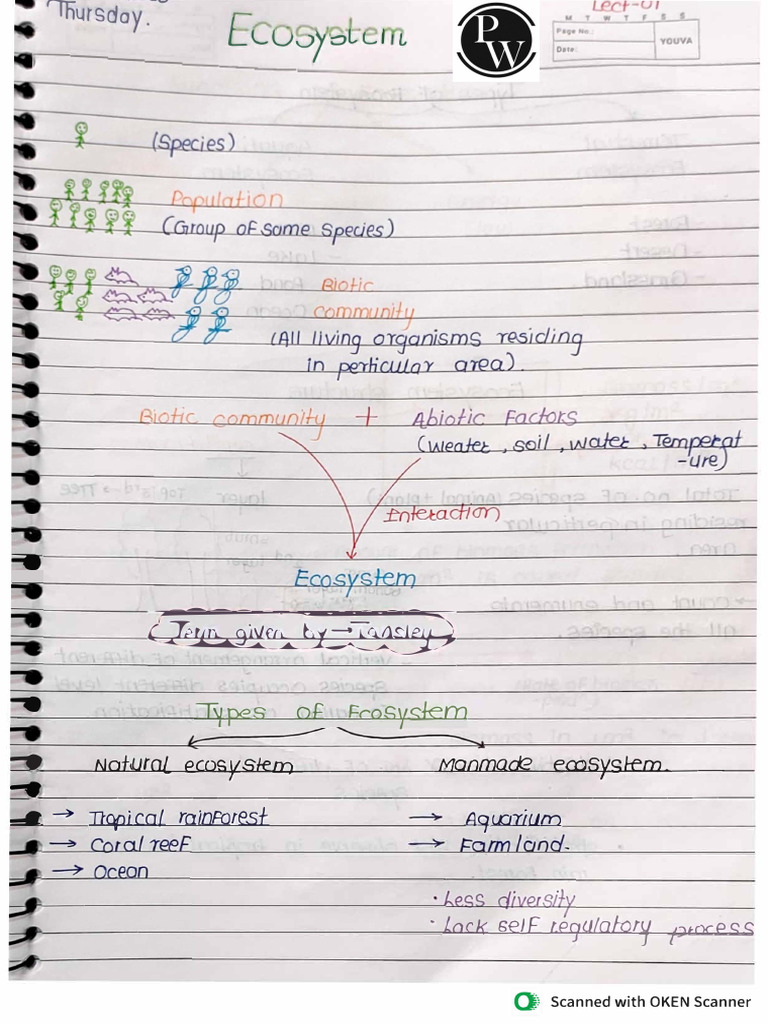 Thursday.
Lect-01
Ecosystem
PW
M T W T F S S
Page No.:
Date:
YOUVA
(Species)
Population
(Group of same species)
Biotic
community
(All living organisms residing
in perticular area).
Biotic community + Abiotic Factors
(Weater, soil, water, Temperat
-ure)
Interaction
Ecosystem
Term given by → Tansley
Types of Ecosystem
Natural ecosystem
Manmade ecosystem.
→ Tropical rainforest
→ Aquarium
→ Coral reef
→ Farmland.
→ Ocean
• Less diversity
• Lack self regulatory process
Scanned with OKEN Scanner